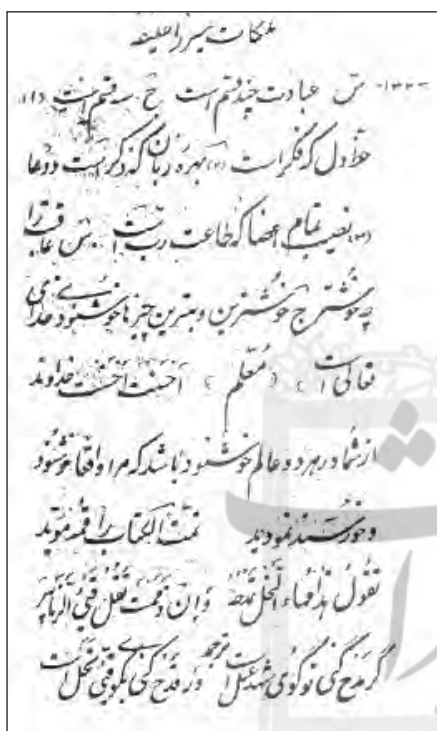 ملکات میرزا
۱۳۳- س عبادت چند قسم است ج سه قسم است (۱)
حظ دل که فکر است (۲) بهره زبان که ذکر است و دعا
(۳) نصیب تمام اعضا که طاعت رب است س
چه خوشتر ج خوشترین و بهترین چیزها خوشنودی خدای
تعالی است (معلم) احسنت احسنت خداوند
از شما در هر دو عالم خوشنود باشد که مرا واقعا خوشنود
و خورسند نمودید تمت الکتاب
تقول هذا مجاج النحل تمدحه و ان ذممت فقل قیء الزنابیر
گر مدح کنی تو گوی شهد عسل است ور قدح کنی بگو قی نحل است